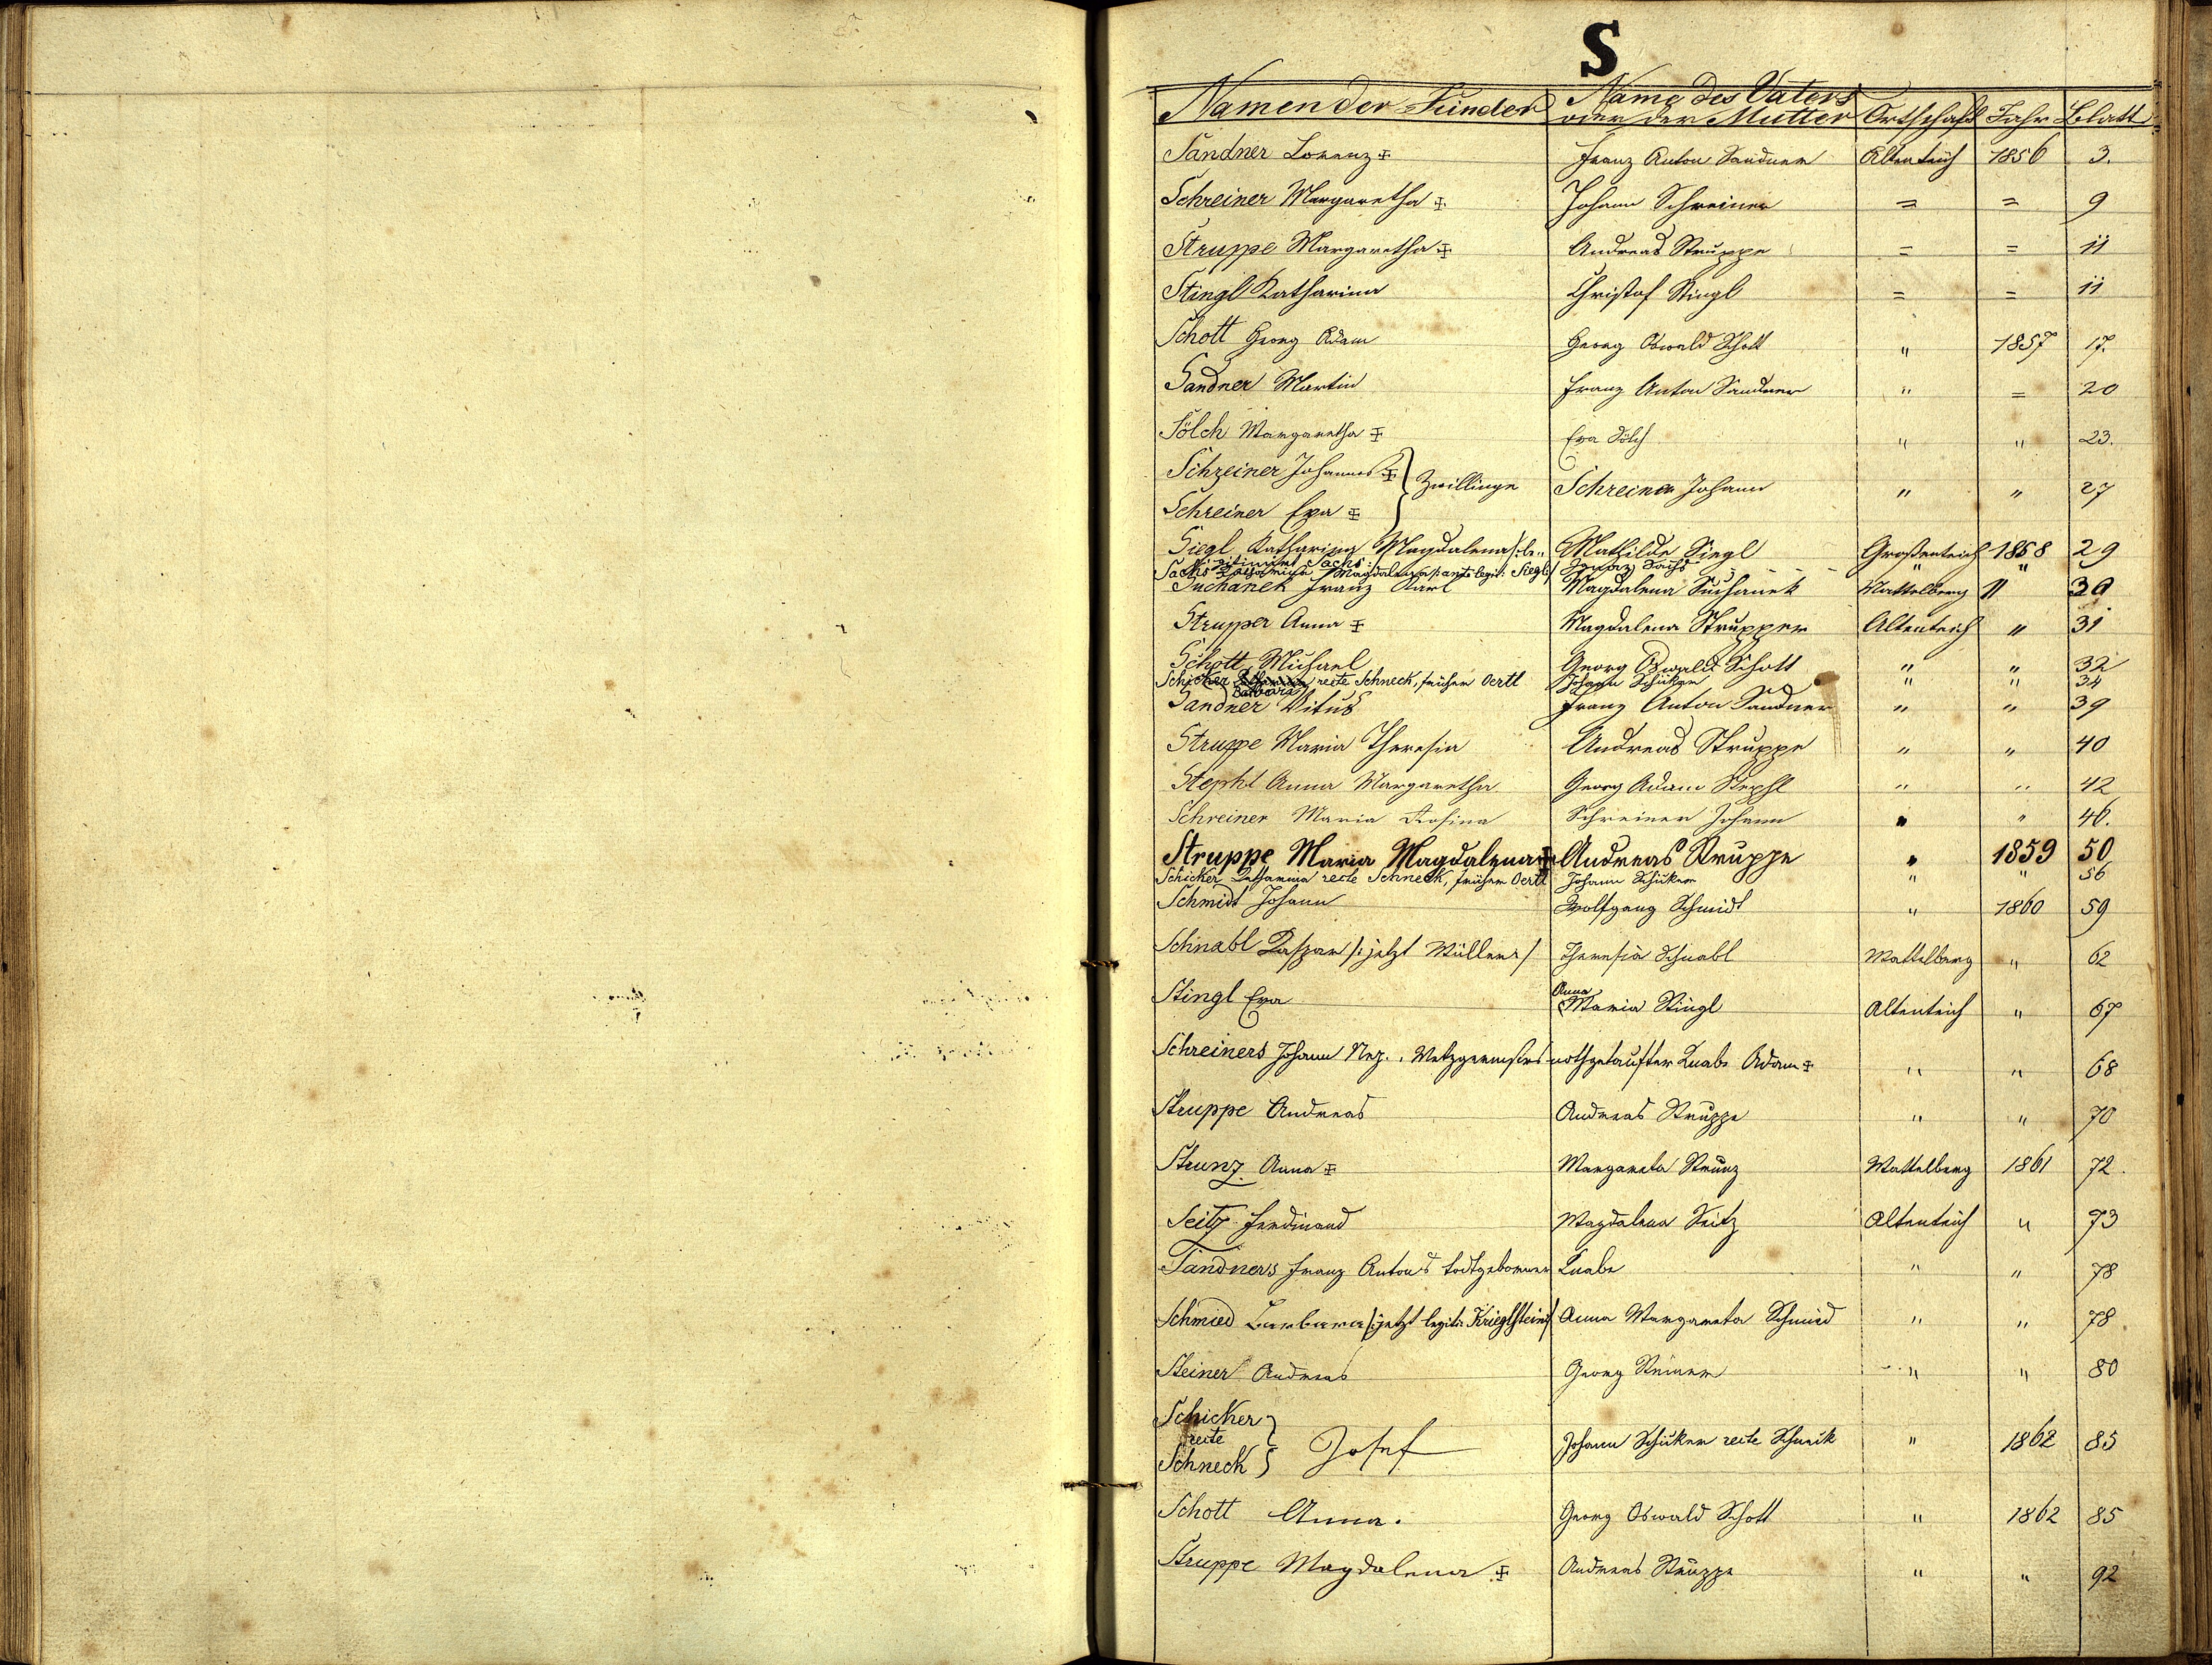 S
Namen der Kinder Name des Vaters oder der Mutter Ortschaft Jahr Blatt
Sandner Lorenz ✠ Franz Anton Sandner Altenteich 1856 3.
Schreiner Margaretha ✠ Johann Schreiner = = 9
Struppe Margaretha ✠ Andreas Struppe = = 11
Stingl Katharina Christof Stingl = = 11
Schott Georg Adam Georg Oswald Schott " 1857 17.
Sandner Martin Franz Anton Sandner " = 20
Sölch Margaretha ✠ Eva Sölch " " 23.
Schreiner Johannes ✠ } Zwillinge Schreiner Johann " " 27
Schreiner Eva ✠
Siegl Katharina Magdalena /: le- Mathilde Siegl Großenteich 1858 29
gitimirt Sachs :/
Sachs Katharina Magdalena /: ante legit: Siegl :/ Ignaz Sachs " "
Suchanek Franz Karl Magdalena Suchanek Mattelberg " 30
Strupper Anna ✠ Magdalena Strupper Altenteich " 31
Schott Michael Georg Oswald Schott " " 32
Schicker Barbara recte Schneck, früher Oertl Johann Schicker " " 34
Sandner Vitus Franz Anton Sandner " " 39
Struppe Maria Theresia Andreas Struppe " " 40
Stephl Anna Margaretha Georg Adam Stephl " " 42
Schreiner Maria Rosina Schreiner Johann " " 46.
Struppe Maria Magdalena ✠ Andreas Struppe " 1859 50
Schicker Katharina recte Schneck, früher Oertl Johann Schicker " " 56
Schmidt Johann Wolfgang Schmidt " 1860 59
Schnabl Kaspar /: jetzt Müller :/ Theresia Schnabl Mattelberg " 62
Stingl Eva Anna Maria Stingl Altenteich " 67
Schreiners Johann Nep., Metzgermeisters nothgetaufter Knabe Adam ✠ " " 68
Struppe Andreas Andreas Struppe " " 70
Strunz Anna ✠ Margareta Strunz Mattelberg 1861 72.
Seitz Ferdinand Magdalena Seitz Altenteich " 73
Sandners Franz Antons todtgeborner Knabe " " 78
Schmied Barbara /: jetzt legit: Krieglstein :/ Anna Margareta Schmied " " 78
Steiner Andreas Georg Steiner " " 80
Schicker
recte } Josef Johann Schicker recte Schneck " 1862 85
Schneck
Schott Anna. Georg Oswald Schott " 1862 85
Struppe Magdalena ✠ Andreas Struppe " " 92